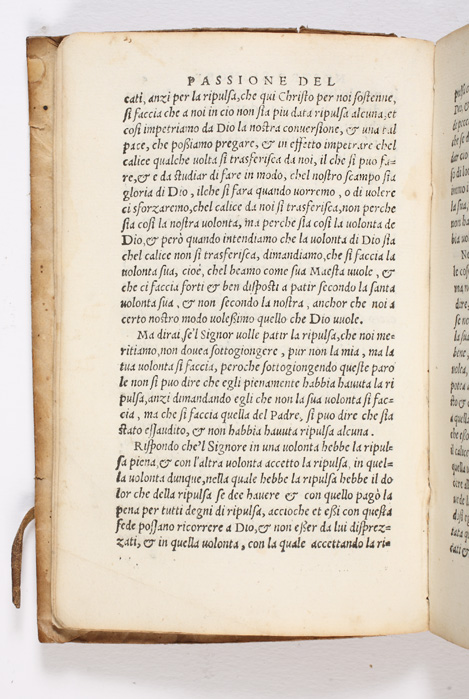 PASSIONE DEL
cati, anzi per la ripulsa, che qui Christo per noi sostenne,
si faccia che a noi in cio non sia piu data ripulsa alcuna; et
cosi impetriamo da Dio la nostra conversione, & una tal
pace, che possiamo pregare, & in effetto impetrare chel
calice qualche uolta si trasferisca da noi, il che si puo fa=
re, & e da studiar di fare in modo, chel nostro scampo sia
gloria di Dio, ilche si fara quando uorremo, o di uolere
ci sforzaremo, chel calice da noi si trasferisca, non perche
sia cosi la nostra uolonta, ma perche sia cosi la uolonta de
Dio, & però quando intendiamo che la uolonta di Dio sia
chel calice non si trasferisca, dimandiamo, che si faccia la
uolonta sua, cioè, chel beamo come sua Maesta uuole, &
che ci faccia forti & ben disposti a patir secondo la santa
uolonta sua, & non secondo la nostra, anchor che noi a
certo nostro modo uolessimo quello che Dio uuole.
Ma dirai se'l Signor uolle patir la ripulsa, che noi me=
ritiamo, non douea sottogiongere, pur non la mia, ma la
tua uolonta si faccia, peroche sottogiongendo queste paro
le non si puo dire che egli pienamente habbia hauuta la ri
pulsa, anzi dimandando egli che non la sua uolonta si fac=
cia, ma che si faccia quella del Padre, si puo dire che sia
stato essaudito, & non habbia hauuta ripulsa alcuna.
Rispondo che'l Signore in una uolonta hebbe la ripul=
sa piena, & con l'altra uolonta accetto la ripulsa, in quel=
la uolonta dunque, nella quale hebbe la ripulsa hebbe il do
lor che della ripulsa se dee hauere & con quello pagò la
pena per tutti degni di ripulsa, accioche et essi con questa
fede possano ricorrere a Dio, & non esser da lui disprez=
zati, & in quella uolonta, con la quale accettando la ri=